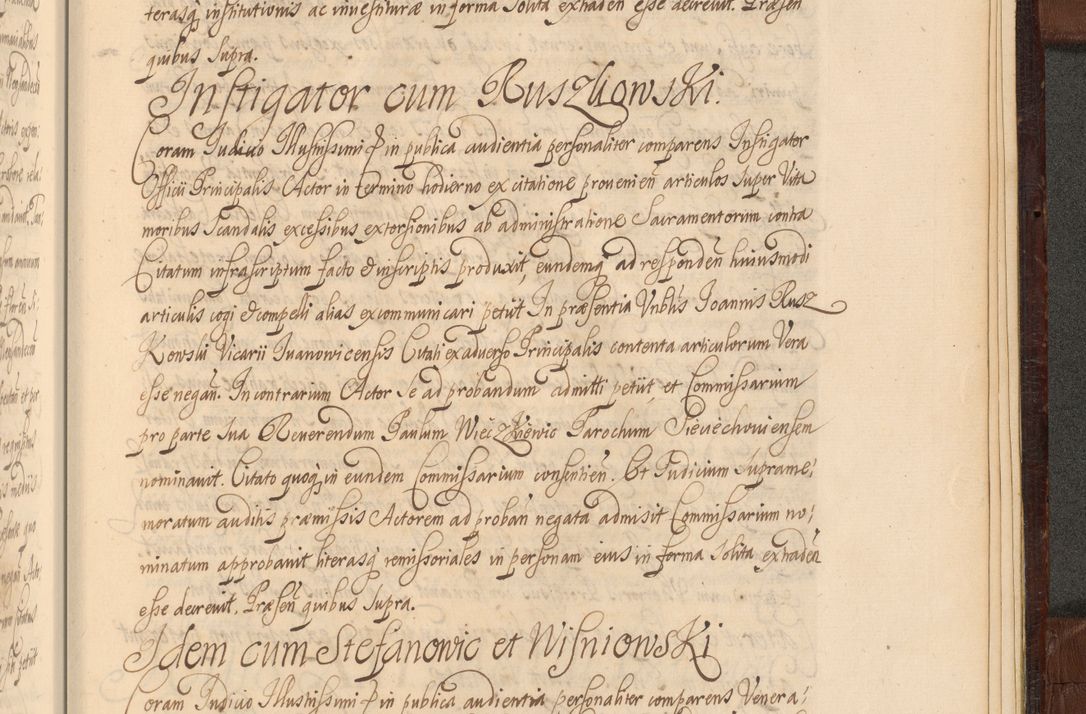 terasq institutionis ac investituræ in forma solita extraden esse decrevit. Præsen
quibus supra.
Instigator cum Ruszkowski.
Coram Judicio Illustrissimi & in publica audientia personaliter comparens Instigator
Officii Principalis Actor in termino hodierno ex citatione provenien articulos super Vita
moribus scandalis excessibus extorsionibus ab administratione Sacramentorum contra
Citatum infrascriptum facto & in scriptis produxit, eundemq ad responden huiusmodi
articulis cogi & compelli alias excommunicari petiit In præsentia Vnblis Joannis Rusz
Kowski Vicarii Iuanowicensis Citati ex adverso Principalis contenta articulorum Vera
esse negan. In contrarium Actor se ad probandum admitti petiit, et Commissarium
pro parte sua Reverendum Paulum Wieczkiewic Parochum Sieciechoviensem
nominavit. Citato quoq, in eundem Commissarium consentien. Et Judicium suprame:
moratum auditis præmissis Actorem ad proban negata admisit Commissarium no:
minatum approbavit literasq remissoriales in personam eius in forma solita extraden
esse decrevit. Præsen quibus supra.
Idem cum Stefanowic et Wisniowski
Coram Judicio Illustrissimi & in publica audientia personaliter comparens Venera: